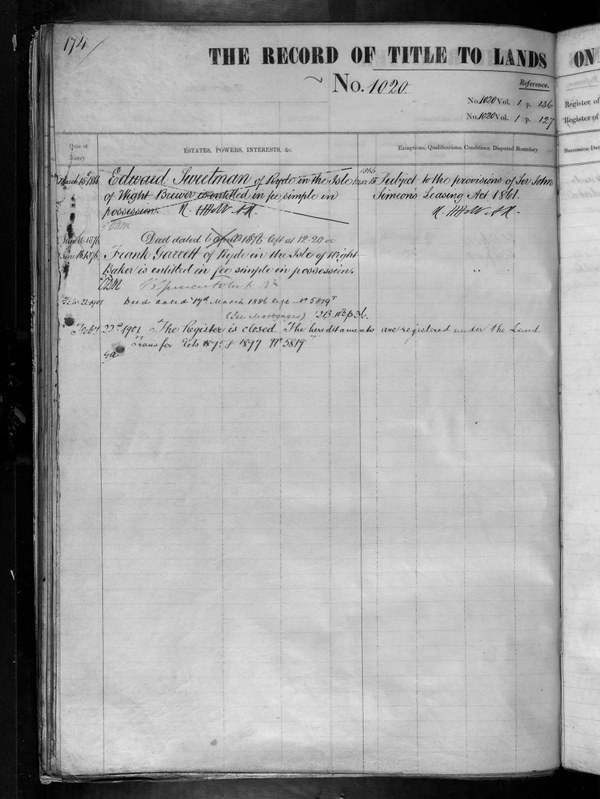 174
THE RECORD OF TITLE TO LANDS
ON
No. 1020
Reference.
No. 1020 Vol. 1 p. 136
No. 1020 Vol. 1 p. 127
Register of
Register of
Date of Entry
ESTATES, POWERS, INTERESTS, &c.
Exceptions, Qualifications, Conditions, Disputed Boundary
Edward Sweetman of Ryde in the Isle
of Wight Brewer is entitled in fee simple in
possession.
Subject to the provisions of Sir John
Simeon's Leasing Act 1861.
Deed dated 6 April 1876 left at 12.20
Frank Garrett of Ryde in the Isle of Wight
Baker is entitled in fee simple in possession.
Feb 22 1901
Deed dated 19th March 1886 No 5819
(See Mortgages)
Feby 22nd 1901 The Register is closed. The hereditaments are registered under the Land
Transfer Acts 1875 & 1897 No 5819